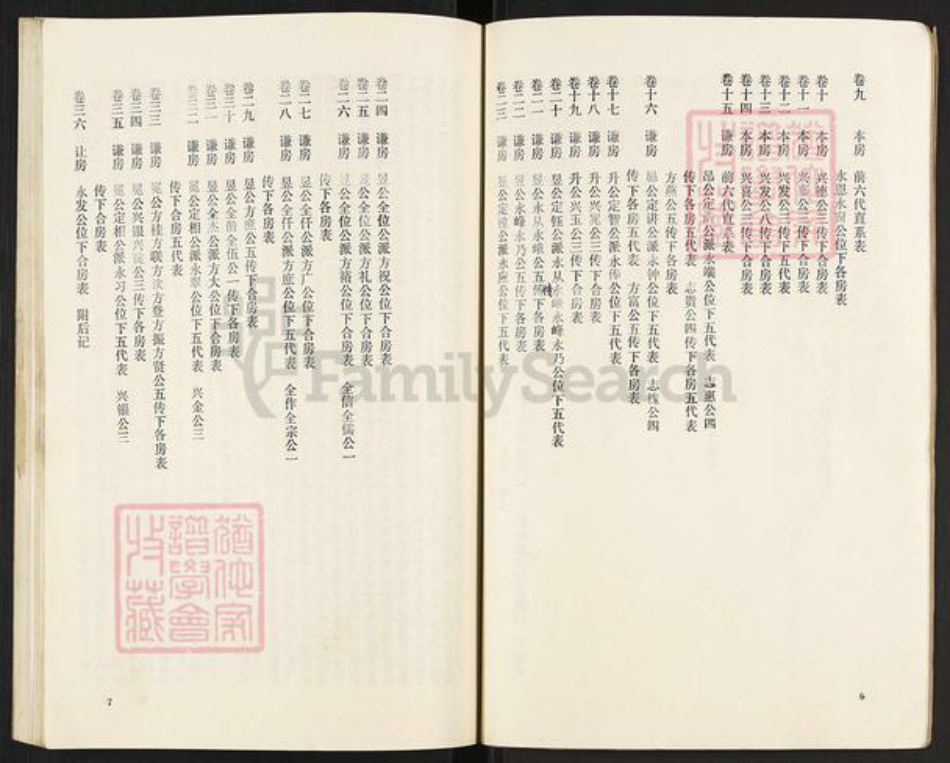 卷九 本房 前六代直系表
公位下各房表
卷十 本房 兴 公三传下合房表
卷十一 本房 兴 公三传下合房表
卷十二 本房 兴发公 传下五代表
卷十三 本房 兴发公八传下合房表
卷十四 本房 兴喜公三传下合房表
卷十五 谦房 前六代直系表
昂公定 公派永端公位下五代表 志惠公四
传下各房五代表 志贵公四传下各房五代表
方 公五传下各房表
卷十六 谦房 公定讲公派永钟公位下五代表 志 公四
传下各房五代表 方富公五传下各房表
卷十七 谦房 升公定智公派永 公位下五代表
卷十八 谦房 升公兴 公三传下合房表
卷十九 谦房 升公兴玉公三传下合房表
卷二十 谦房 昱公定钰公派永从永 永峰永乃公位下五代表
卷二一 谦房 公永从永 公五传下各房表
卷二二 谦房 公永峰永乃公五传下各房表
卷二三 谦房 公定 公派永 公位下五代表
6
卷二四 谦房 公全位公派方祝公位下合房表
卷二五 谦房 公全位公派方礼公位下合房表
卷二六 谦房 公全位公派方裕公位下合房表 全信全儒公一
传下各房表
卷二七 谦房 昱公全仟公派方广公位下合房表
卷二八 谦房 昱公全仟公派方庶公位下五代表 全作全宗公一
传下各房表
卷二九 谦房 昱公方庶公五传下合房表
卷三十 谦房 昱公全 全伍公一传下各房表
卷三一 谦房 昱公全杰公派方大公位下合房表
卷三二 谦房 冕公定相公派永 公位下五代表 兴金公三
传下合房五代表
卷三三 谦房 冕公方桂方联方 方登方振方贤公五传下各房表
卷三四 谦房 冕公兴银兴 公三传下各房表
卷三五 谦房 冕公定相公派永习公位下五代表 兴银公三
传下合房表
卷三六 让房 永发公位下合房表 附后记
7
FamilySearch
犹他家
谱学会
收藏